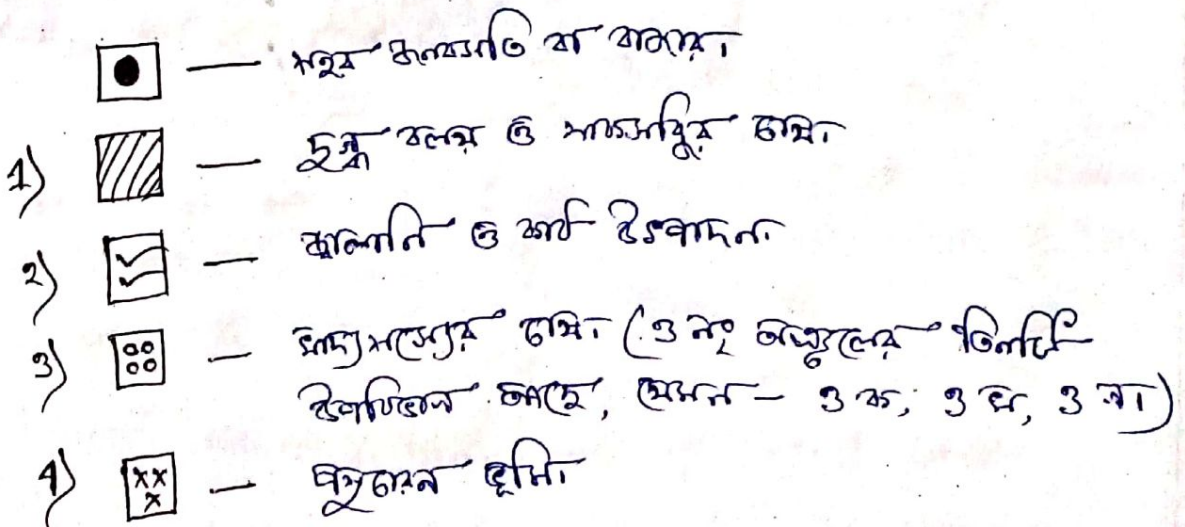 — শহর জনবসতি বা বাজার।
1) — দুগ্ধ বলয় ও শাকসব্জির চাষ।
2) — জ্বালানি ও কাঠ উৎপাদন।
3) — খাদ্যশস্যের চাষ। (3 নং অঞ্চলের তিনটি
উপবিভাগ আছে, যেমন - 3 ক, 3 খ, 3 গ।)
4) — পশুচারন ভূমি।